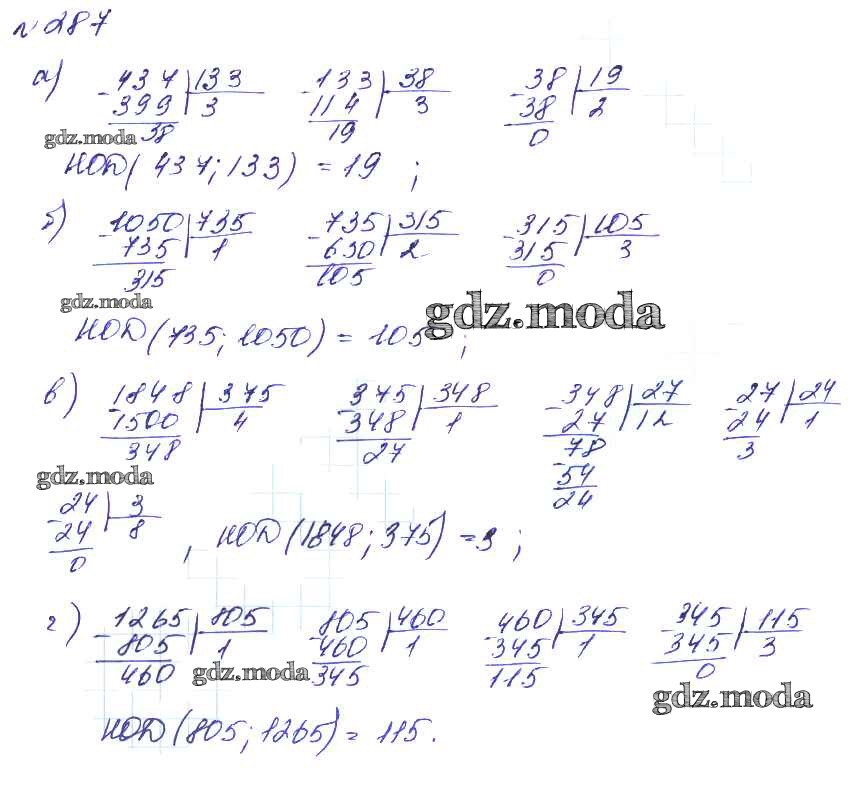 № 287
а) 437 | 133 133 | 38 38 | 19
- 399 | 3 - 114 | 3 - 38 | 2
38 19 0
gdz.moda
НОД(437; 133) = 19 ;
б) 1050 | 735 735 | 315 315 | 105
- 735 | 1 - 630 | 2 - 315 | 3
315 105 0
gdz.moda
gdz.moda
НОД(735; 1050) = 105 ;
в) 1848 | 375 375 | 348 348 | 27 27 | 24
- 1500 | 4 - 348 | 1 - 27 | 12 - 24 | 1
348 27 78 3
- 54
24
gdz.moda
24 | 3
- 24 | 8
0 , НОД(1848; 375) = 3 ;
г) 1265 | 805 805 | 460 460 | 345 345 | 115
- 805 | 1 - 460 | 1 - 345 | 1 - 345 | 3
460 345 115 0
gdz.moda
gdz.moda
НОД(805; 1265) = 115.